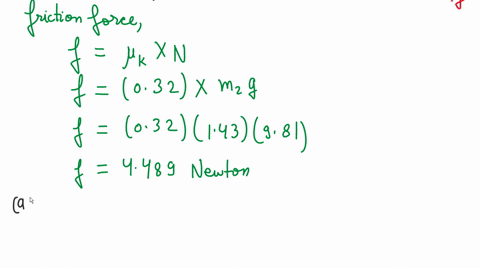 friction force,
f = μk × N
f = (0.32) × m₂ g
f = (0.32) (1.43) (9.81)
f = 4.489 Newton
(a